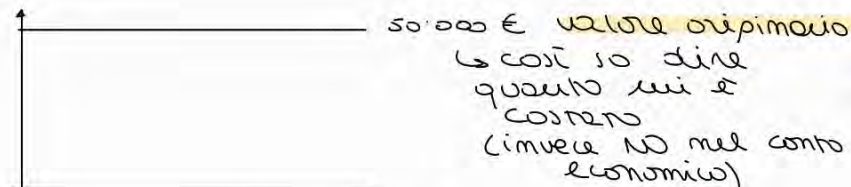 50.000 € valore originario
↳ così so dire
quanto mi è
costato
(invece NO nel conto
economico)